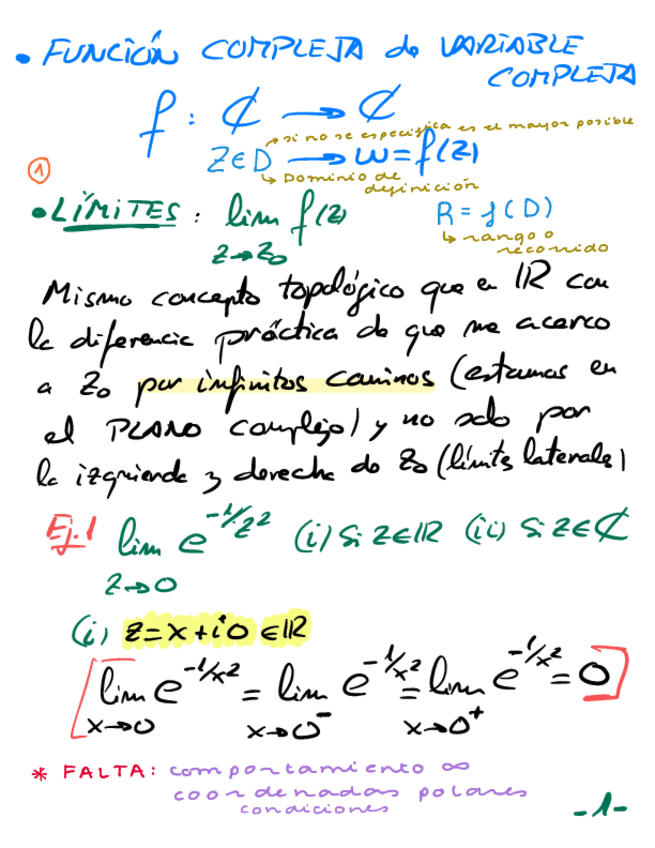 • FUNCIÓN COMPLEJA de VARIABLE
COMPLEJA
f : ℂ → ℂ
→ si no se especifica es el mayor posible
Z∈D → w = f(z)
↳ Dominio de
definición
①
• LÍMITES : lim f(z)
z→z₀
R = f(D)
↳ rango o
recorrido
Mismo concepto topológico que en ℝ con
la diferencia práctica de que me acerco
a z₀ por infinitos caminos (estamos en
el PLANO complejo) y no solo por
la izquierda y derecha de z₀ (límits laterales)
Ej.1 lim e^(-1/z²) (i) Si z∈ℝ (ii) Si z∈ℂ
z→0
(i) z = x + i0 ∈ ℝ
lim e^(-1/x²) = lim e^(-1/x²) = lim e^(-1/x²) = 0
x→0 x→0⁻ x→0⁺
* FALTA: comportamiento ∞
coordenadas polares
condiciones
-1-